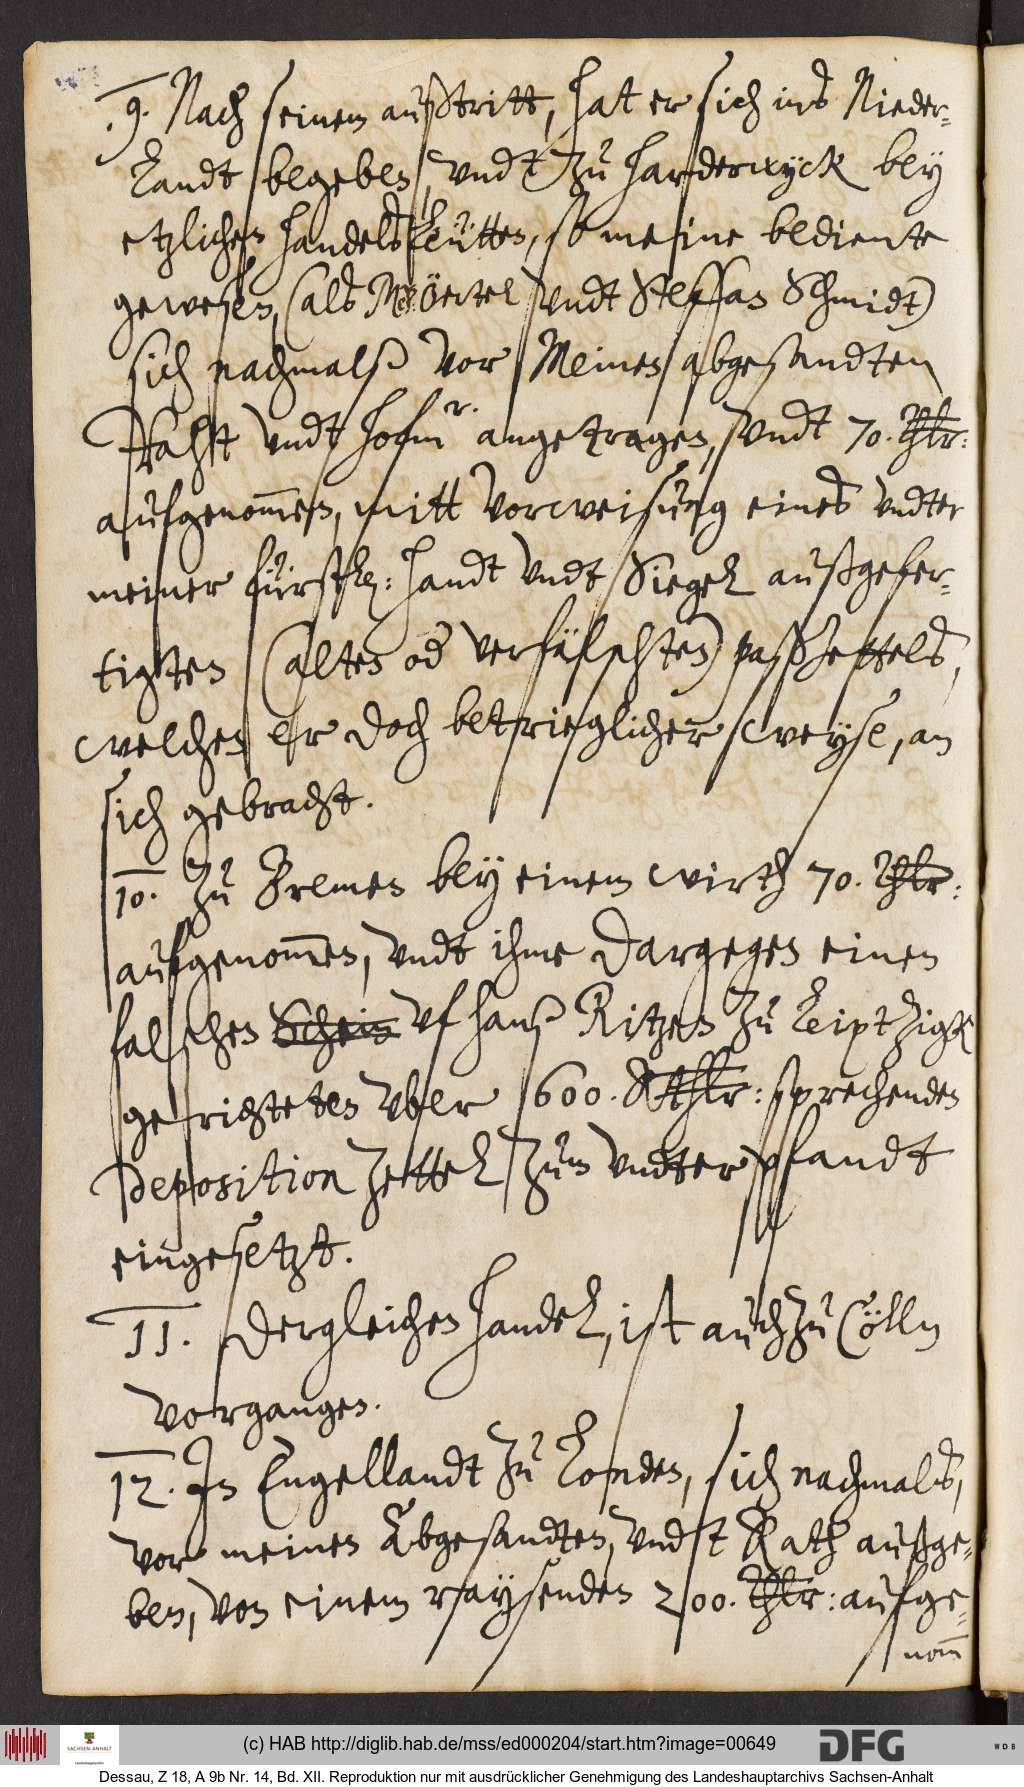 .9. Nach seinem außtritt, hat er sich ins Nieder-
Landt begeben, vndt zu Harderwyck bey
etzlichen Handelsleütten, so meine bediente
gewesen, (als Mö Oertel vndt Steffan Schmidt)
sich nachmalß vor Meinen abgesandten
Raht vndt Hofmr. angetragen, vndt 70. Thlr:
aufgenom̅en, mitt vorweisung eines vndter
meiner fürstl: Handt vndt Siegel außgefer-
tigten (alten od verfälschten) paßzettels,
welchen er doch betrieglicher weyse, an
sich gebracht.
10. Zu Bremen bey einem wirth 70. Thlr:
aufgenom̅en, vndt ihme dargegen einen
falschen Schein vf Hanß Ritzen zu Leiptzigk
gerichteten vber 600. Rthlr: sprechenden
Deposition Zettel zum vndterpfandt
eingesetzt.
11. Dergleichen Handel, ist auch zu Cölln
vorgangen.
12. In Engellandt zu Londen, sich nachmals,
vor meinen Abgesandten, vndt Rath außge-
ben, von einem raysenden 200. Thlr: aufge-
nom̅
SACHSEN-ANHALT
Landeshauptarchiv
(c) HAB http://diglib.hab.de/mss/ed000204/start.htm?image=00649
DFG
WDB
Dessau, Z 18, A 9b Nr. 14, Bd. XII. Reproduktion nur mit ausdrücklicher Genehmigung des Landeshauptarchivs Sachsen-Anhalt